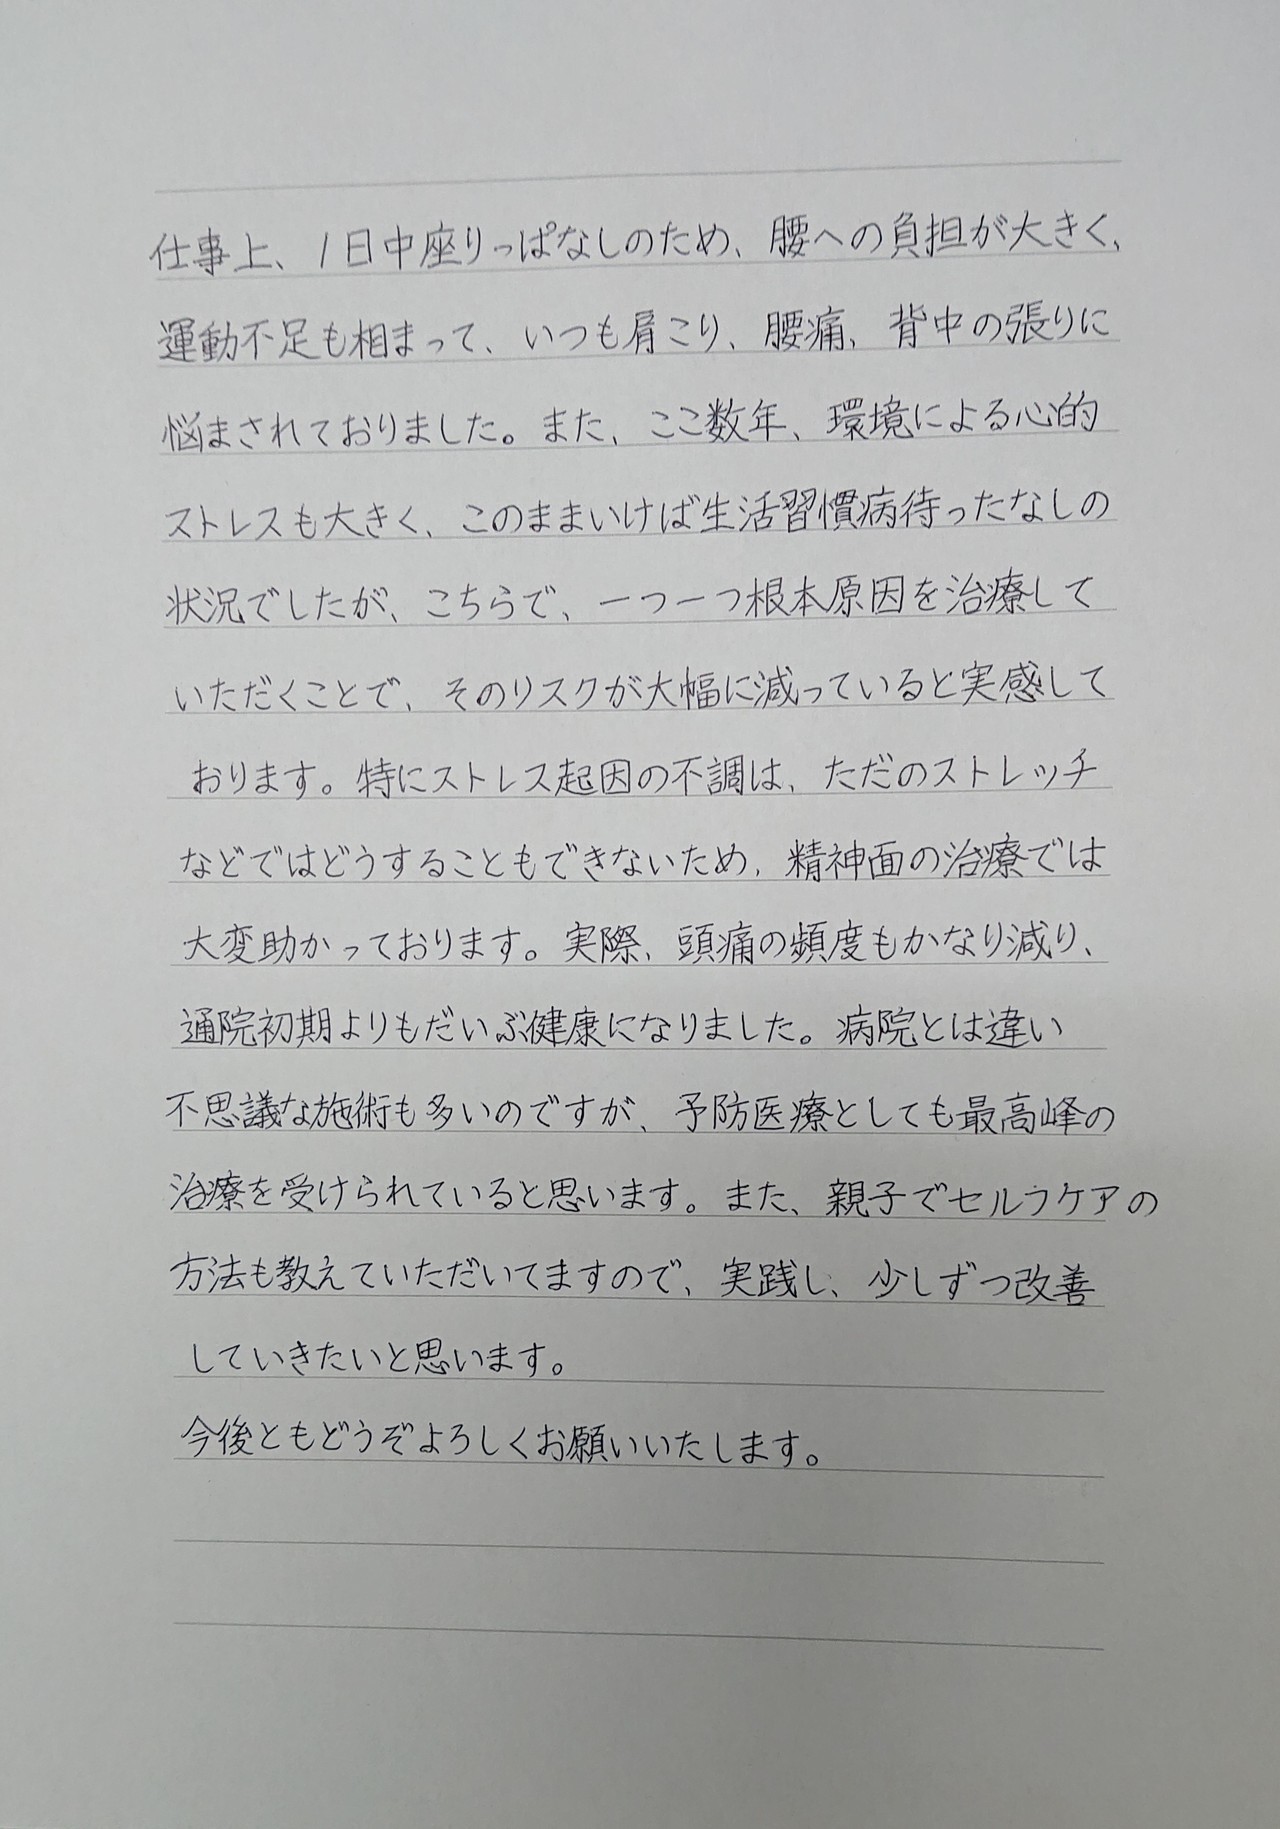 仕事上、1日中座りっぱなしのため、腰への負担が大きく、
運動不足も相まって、いつも肩こり、腰痛、背中の張りに
悩まされておりました。また、ここ数年、環境による心的
ストレスも大きく、このままいけば生活習慣病待ったなしの
状況でしたが、こちらで、一つ一つ根本原因を治療して
いただくことで、そのリスクが大幅に減っていると実感して
おります。特にストレス起因の不調は、ただのストレッチ
などではどうすることもできないため、精神面の治療では
大変助かっております。実際、頭痛の頻度もかなり減り、
通院初期よりもだいぶ健康になりました。病院とは違い
不思議な施術も多いのですが、予防医療としても最高峰の
治療を受けられていると思います。また、親子でセルフケアの
方法も教えていただいてますので、実践し、少しずつ改善
していきたいと思います。
今後ともどうぞよろしくお願いいたします。